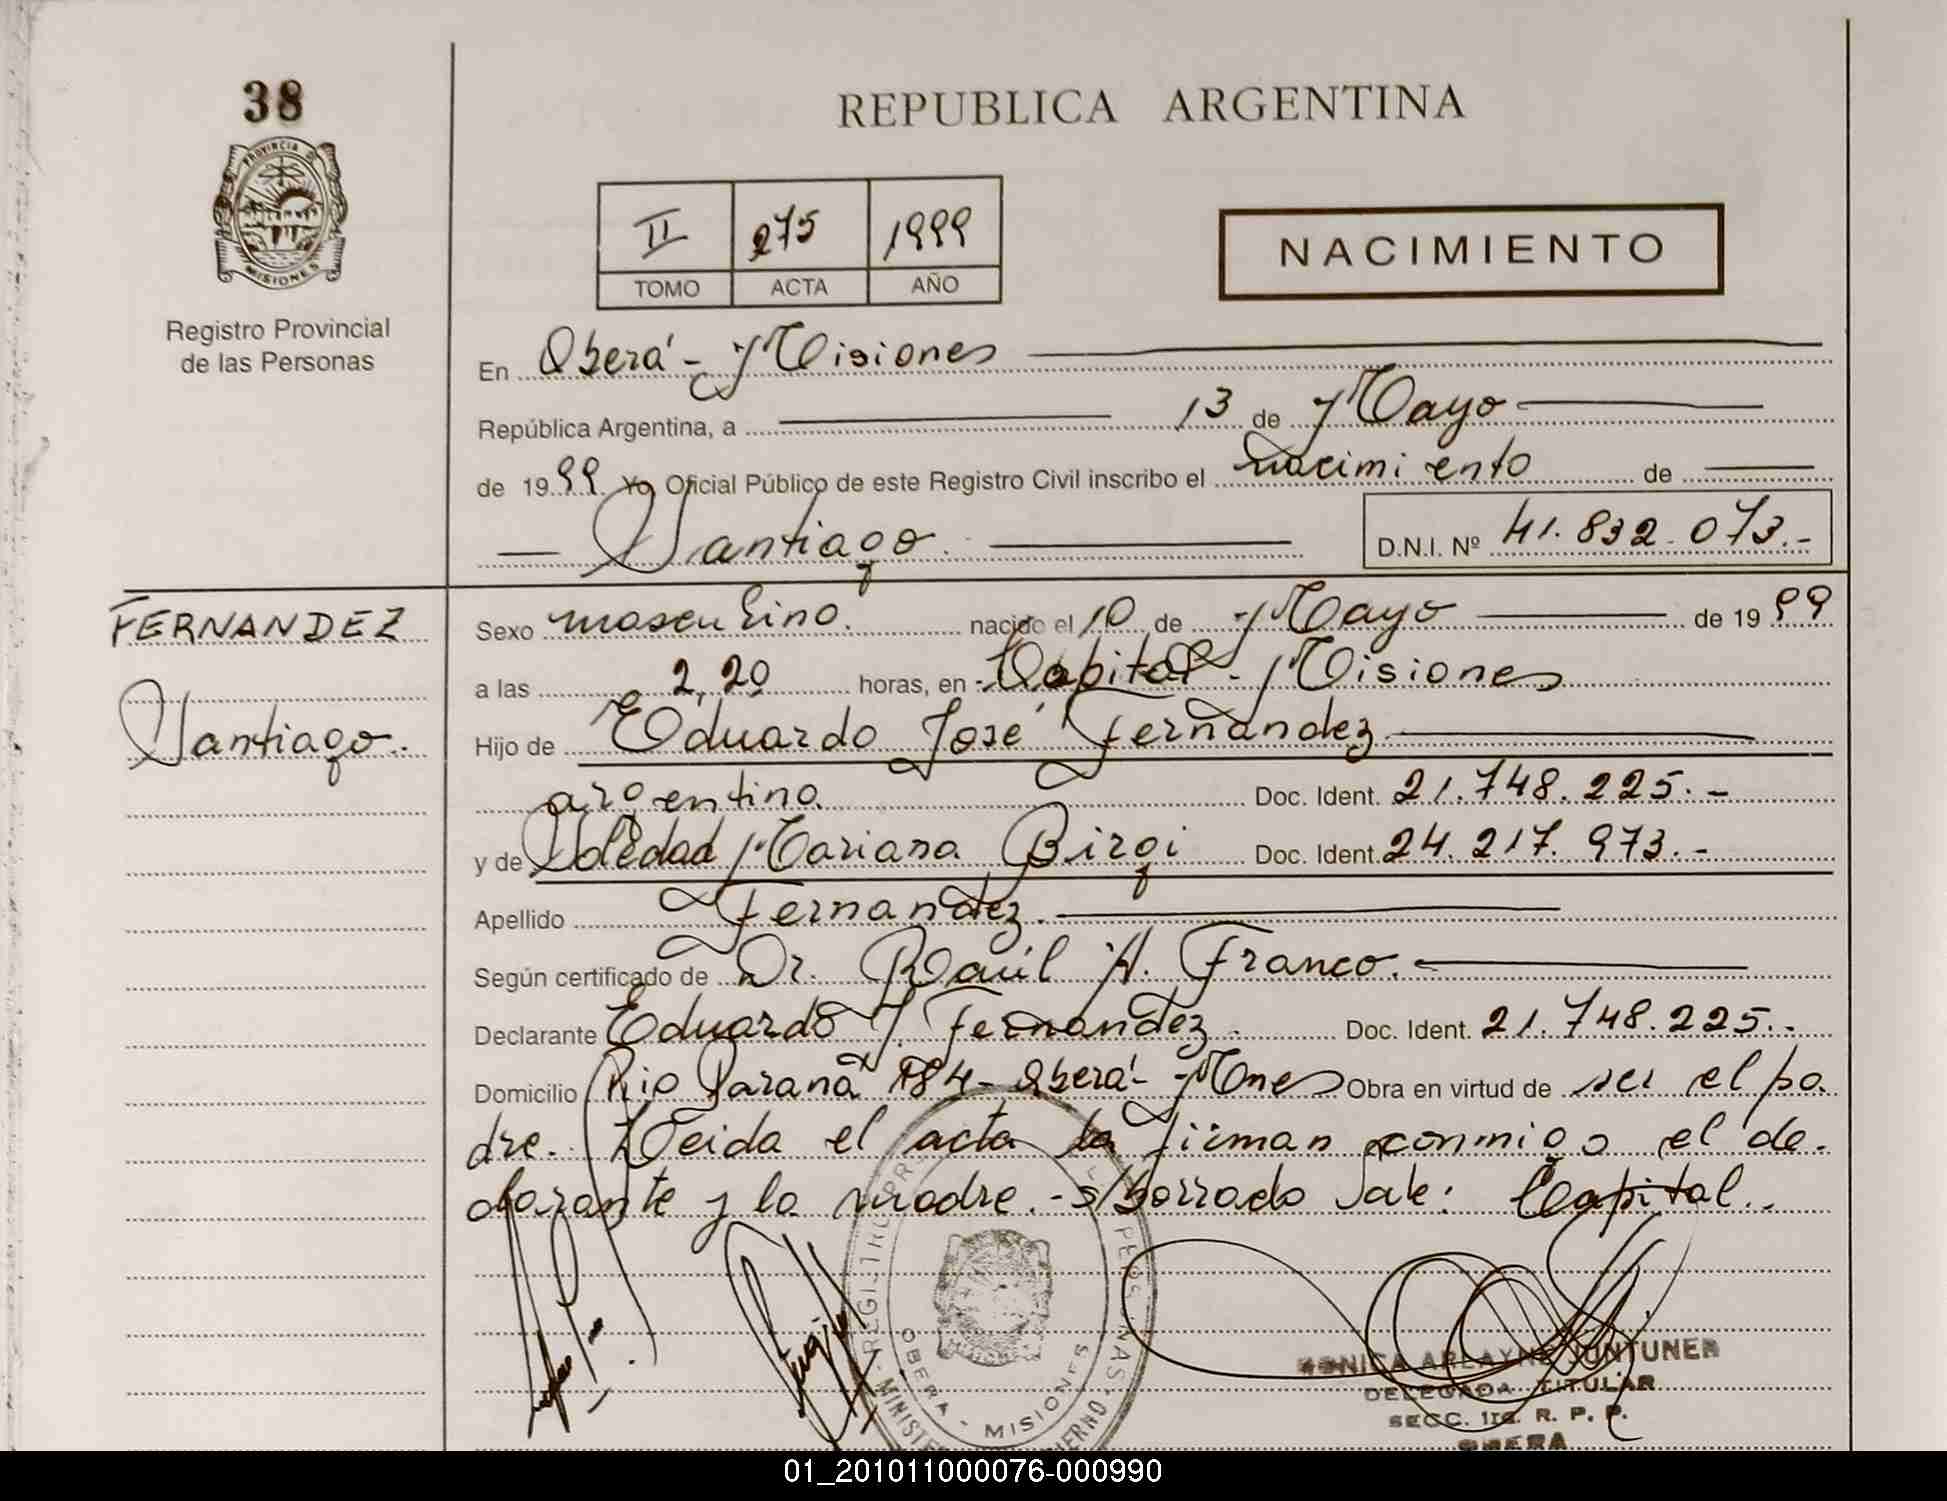 38
REPUBLICA ARGENTINA
PROVINCIA D
MISIONES
II 275 1999
TOMO ACTA AÑO
NACIMIENTO
Registro Provincial
de las Personas
En Oberá - Misiones
República Argentina, a 13 de Mayo
de 1999 Yo Oficial Público de este Registro Civil inscribo el nacimiento de
Santiago D.N.I. Nº 41.832.073.-
FERNANDEZ
Santiago.
Sexo masculino. nacido el 10 de Mayo de 1999
a las 2,20 horas, en Capital - Misiones
Hijo de Eduardo José Fernandez
argentino. Doc. Ident. 21.748.225.-
y de Soledad Mariana Birgi Doc. Ident. 24.217.973.-
Apellido Fernandez.
Según certificado de Dr. Raúl A. Franco.
Declarante Eduardo J. Fernandez. Doc. Ident. 21.748.225.-
Domicilio Rio Paraná 784 - Oberá - Mnes Obra en virtud de ser el pa-
dre. Leida el acta la firman conmigo el de-
clarante y la madre. - s/borrado Vale: Capital.-
OBERA - MISIONES
MONICA ARLAYNE JUNTUNEN
DELEGADA TITULAR
SECC. 1ra. R. P. P.
OBERA
01_201011000076-000990